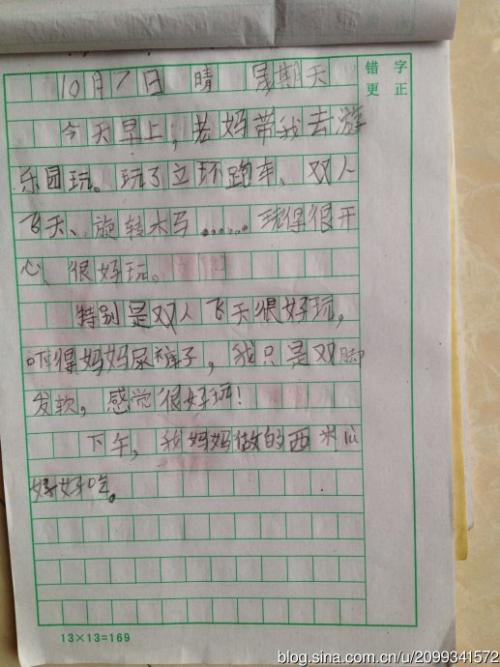 错字
更正
10月7日 晴 星期天
今天早上,爸妈带我去游
乐园玩。玩了立环跑车、双人
飞天、旋转木马……玩得很开
心、很好玩。
特别是双人飞天很好玩,
吓得妈妈尿裤子,我只是双脚
发软,感觉很好玩!
下午,我妈妈做的西米
好好吃。
13×13=169
blog.sina.com.cn/u/2099341572